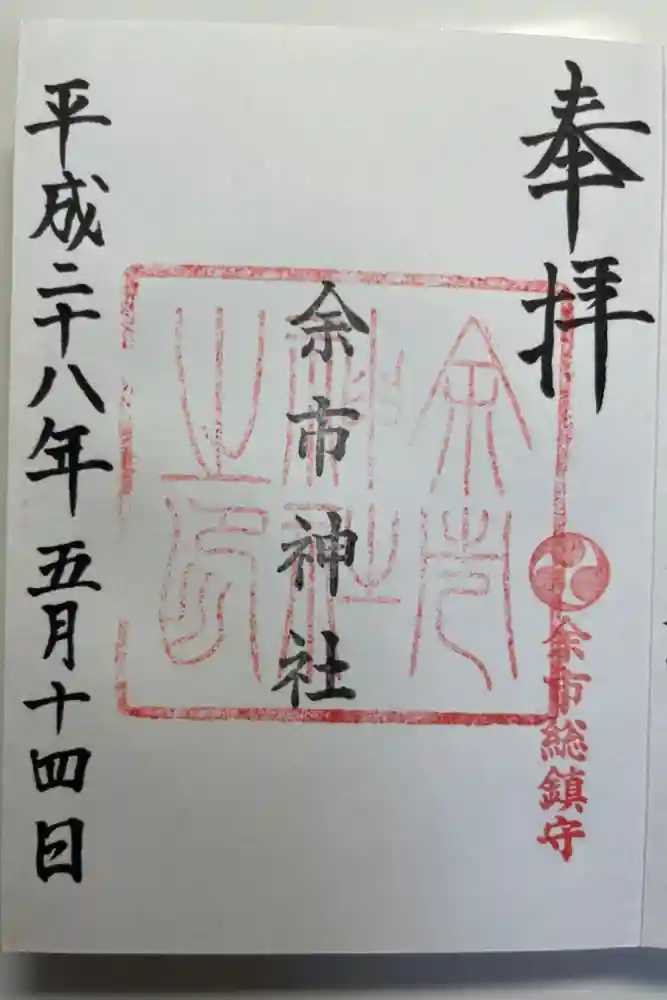 奉拝
余市総鎮守
余市神社
余市
神社
之印
平成二十八年五月十四日